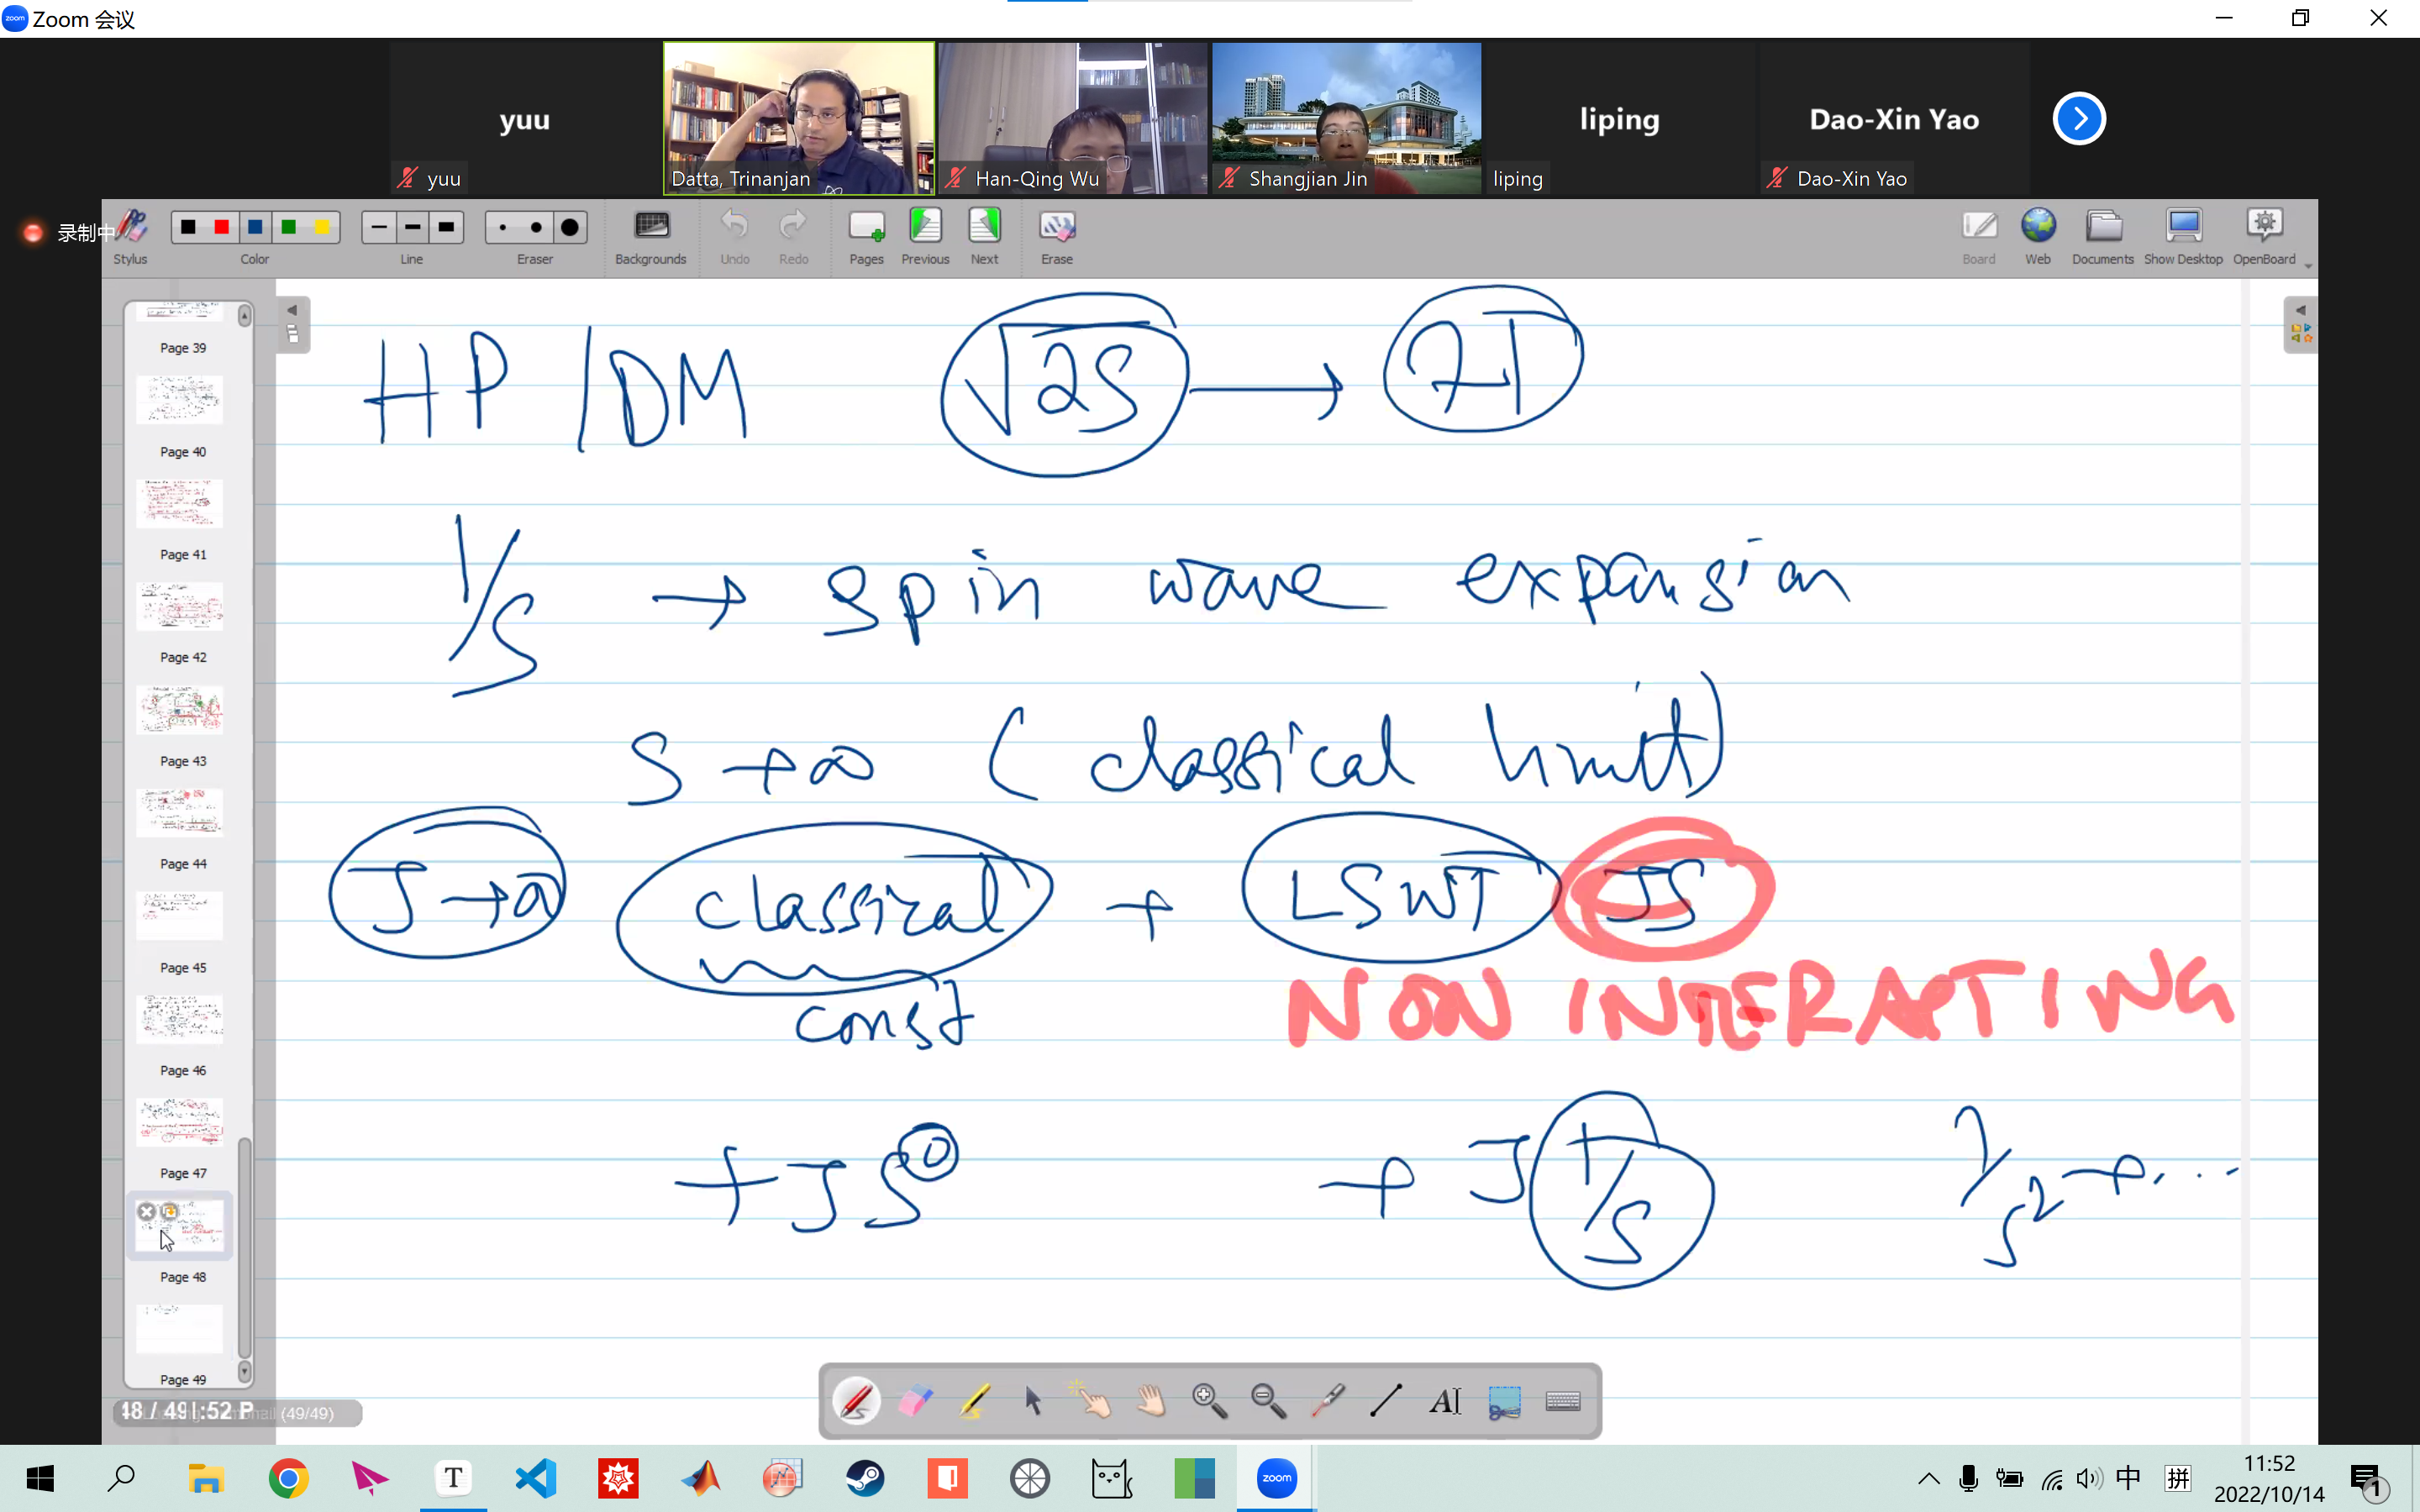 Zoom 会议
yuu
liping
Dao-Xin Yao
yuu
Datta, Trinanjan
Han-Qing Wu
Shangjian Jin
liping
Dao-Xin Yao
录制中
Stylus
Color
Line
Eraser
Backgrounds
Undo
Redo
Pages
Previous
Next
Erase
Board
Web
Documents
Show Desktop
OpenBoard
Page 39
Page 40
Page 41
Page 42
Page 43
Page 44
Page 45
Page 46
Page 47
Page 48
Page 49
HP / DM √2S →
1/S → spin wave expansion
S → ∞ (classical limit)
J → classical + LSWT JS
const NON INTERACTING
+ JS⁰ + J 1/S 1/S² + ...
48 / 49
(49/49)
AI
T
zoom
中
拼
11:52
2022/10/14
1